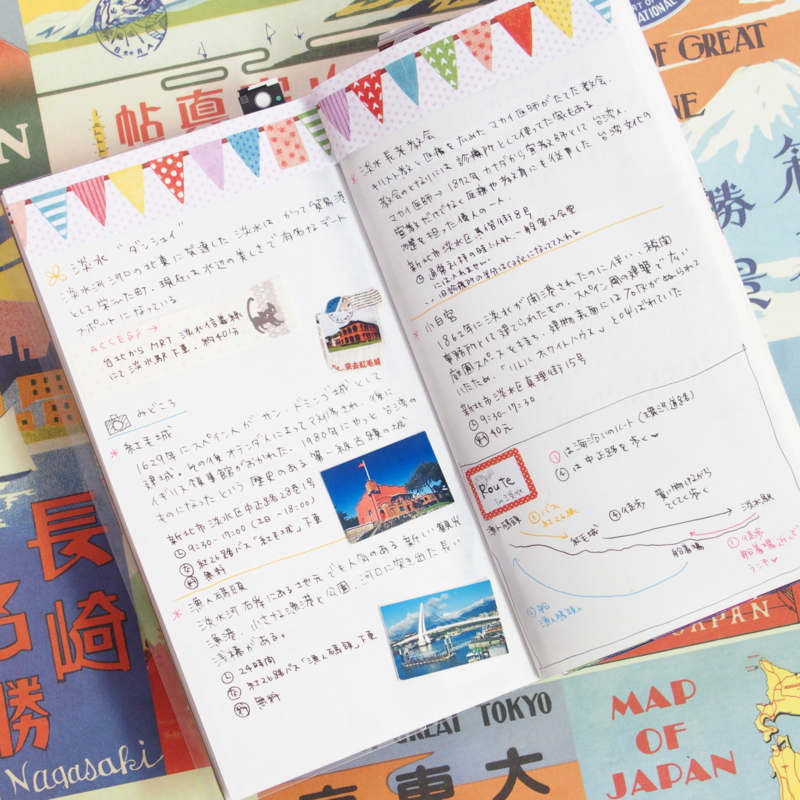 淡水 "ダンシュイ"
淡水河 河口の北東に発達した淡水は かつて貿易港
として栄えた町。現在は水辺の美しさで有名なデート
スポットになっている
ACCESS→
台北から MRT 淡水信義線
にて淡水駅下車。約40分
来去紅毛城
みどころ
* 紅毛城
1629年にスペイン人が サン・ドミンゴ城として
建城。その後オランダ人によって
イギリス領事館がおかれた。1980年にやっと台湾の
ものになったという 歴史のある第一級古蹟の城
新北市淡水区中正路28巷1号
9:30-17:00 (土日-18:00)
紅26路バス「紅毛城」下車
無料
* 漁人碼頭
淡水河右岸にある地元でも人気のある 新しい観光
漁港。小さな漁港と公園、河口に突き出た長い
浮橋がある。
24時間
紅26路バス「漁人碼頭」下車
無料
* 淡水長老教会
キリスト教と医療を広めた マカイ医師がたてた教会。
教会のとなりには 診療所として使ってた家もある
マカイ医師→ 1872年 カナダから宣教師として 台湾入。
宣教だけでなく医療や教育にも従事した 台湾文化の
礎を担った偉人の一人
新北市淡水区馬偕街8号
* 小白宮
1862年に淡水が開港されたのに伴い、税関
事務所として建てられたもの。スペイン風の建築で 広い
庭園スペースを持ち、建物表面には
いたため、「リトルホワイトハウス」と呼ばれていた
新北市淡水区真理街15号
9:30-17:30
40元
③は海沿いのルート (環河道路)
④は中正路を歩く♥
Route
in 淡水
漁人碼頭
③バス
紅26路
紅毛城
④徒歩
買い物しながら
てくてく歩く
淡水駅
船着場
①徒歩
船着場近くで
ランチ♥
②船
漁人碼頭へ
帖真寫
OF GREAT
勝景
長崎
名勝
Nagasaki
GREAT TOKYO
大東京
MAP
OF
JAPAN
JAPAN